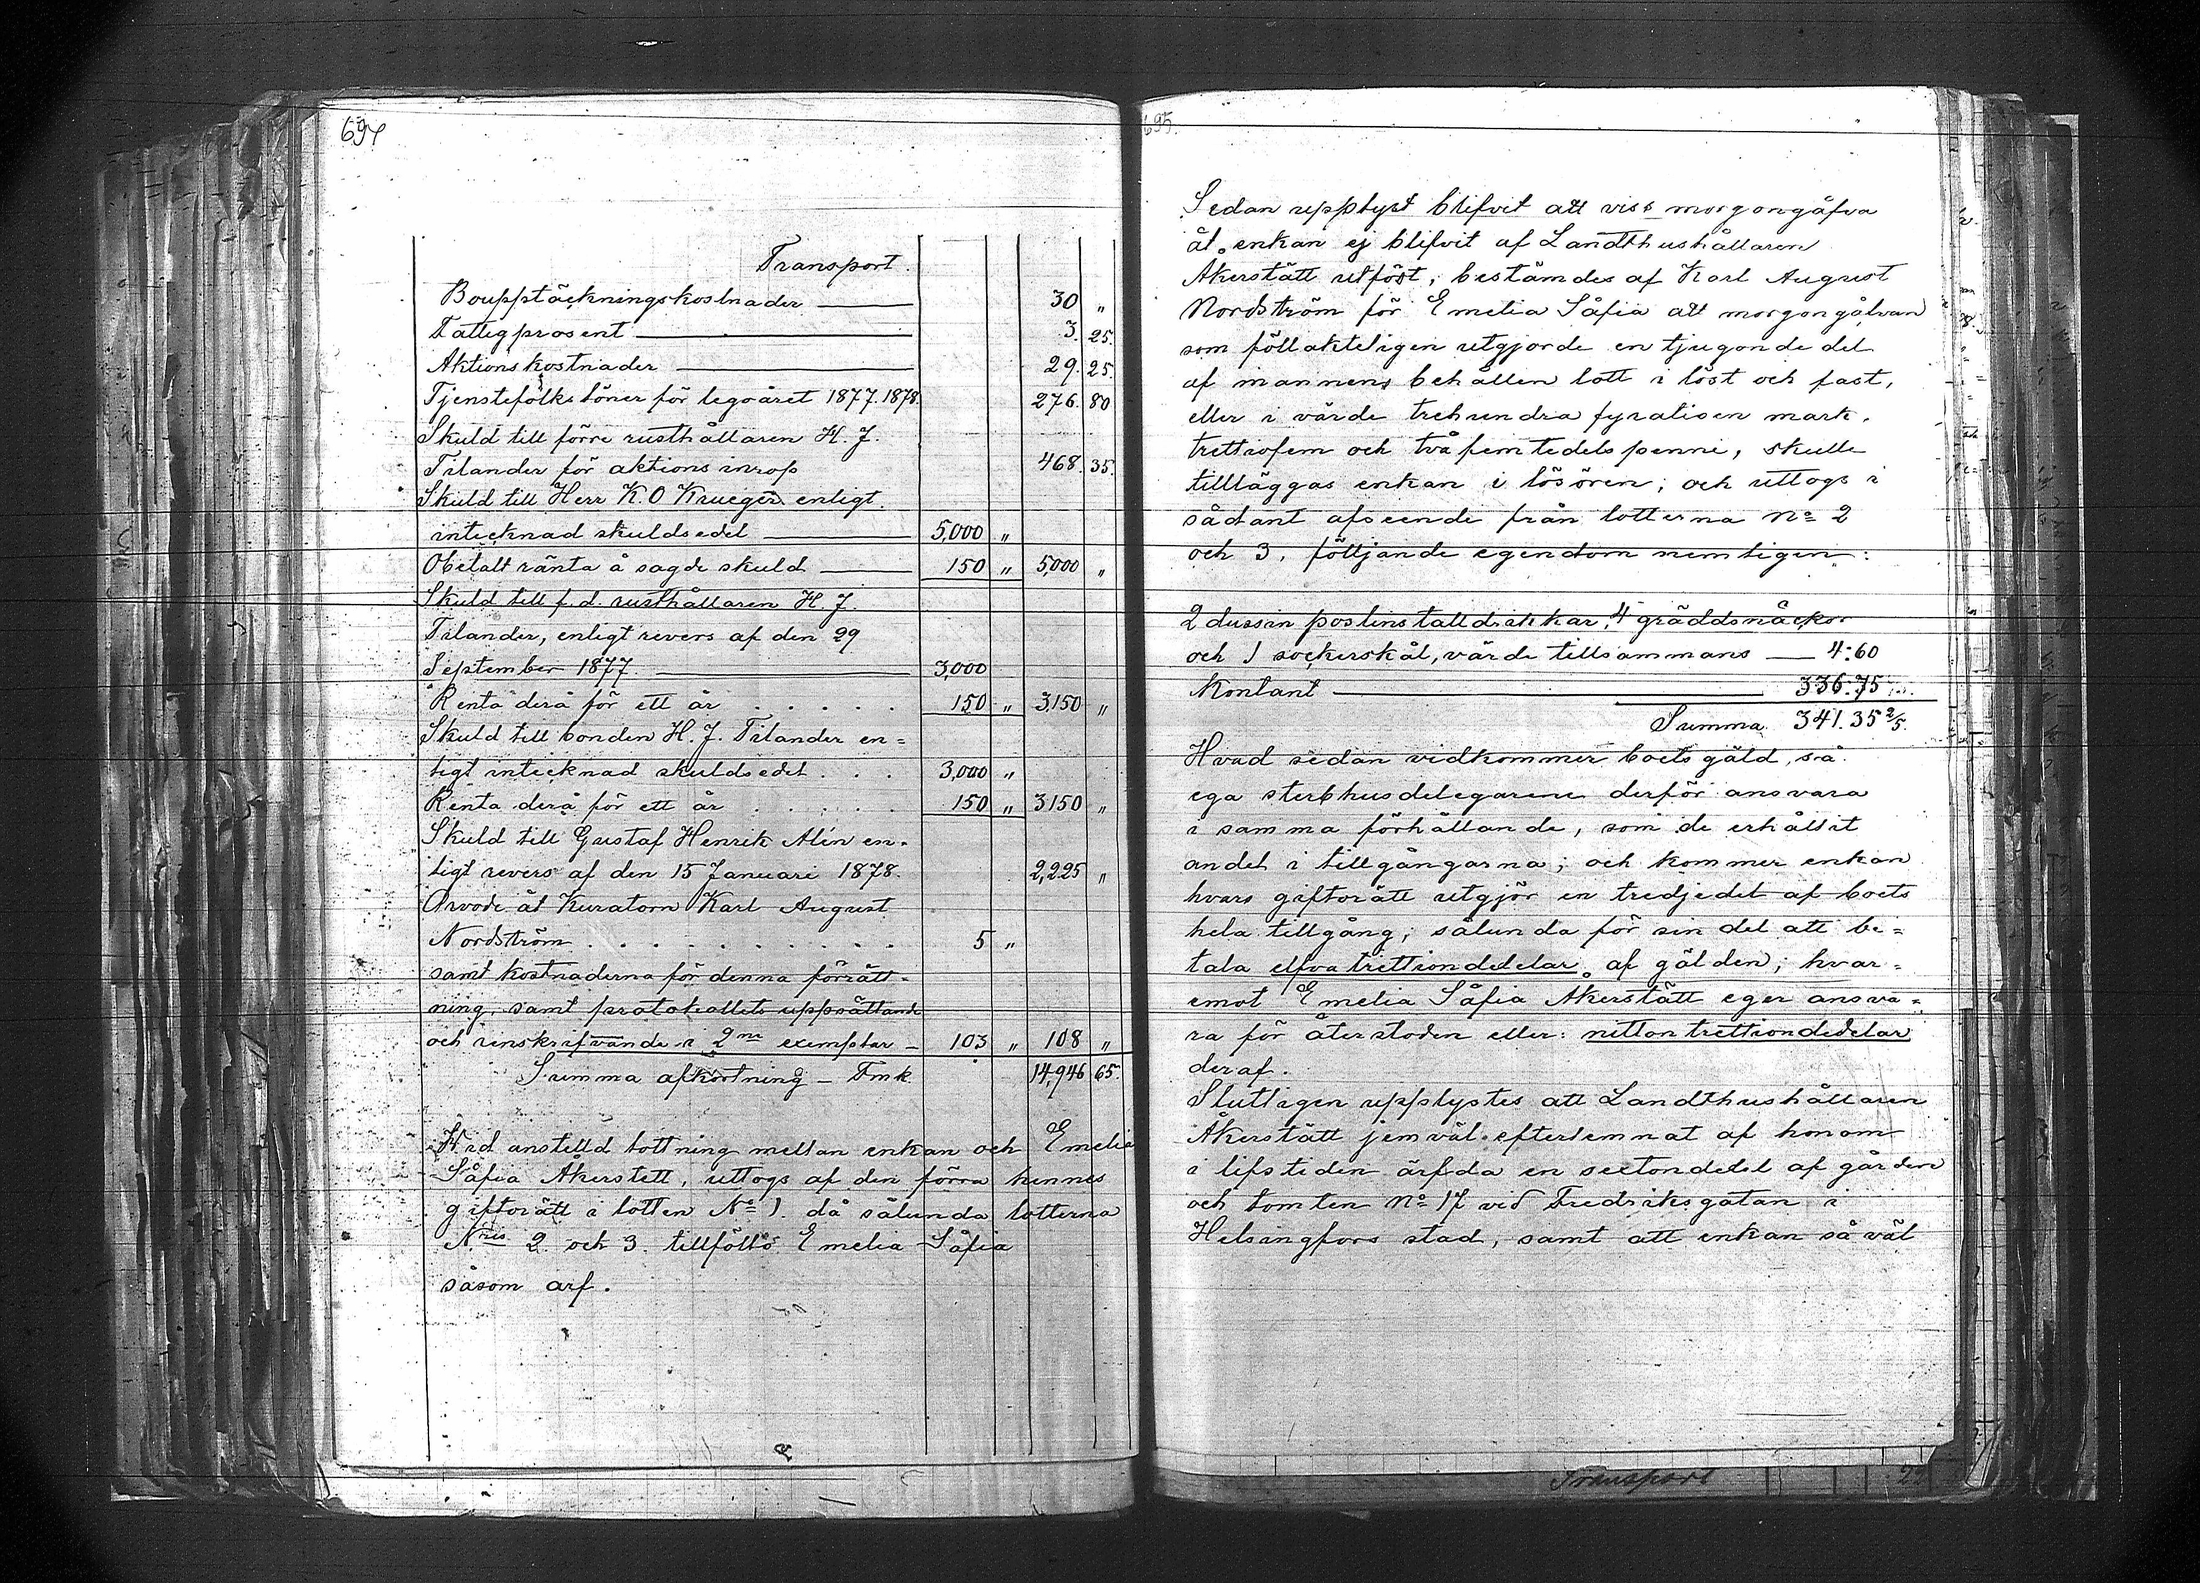 694
Transport.
Boupptäckningskostnader — 30 "
Fattigprosent — 3. 25.
Aktionskostnader — 29. 25.
Tjenstefolkslöner för legoåret 1877.1878. 276. 80
Skuld till förre rusthållaren H. J.
Tilander för aktions inrop 468. 35.
Skuld till Herr K. O Krueger enligt
intecknad skuldsedel — 5,000 "
Obetalt ränta å sagde skuld — 150 " 5,000 "
Skuld till f. d. rusthållaren H. J.
Tilander, enligt revers af den 29
September 1877. — 3,000
Renta derå för ett år . . . . . 150 " 3150 "
Skuld till bonden H. J. Tilander en=
ligt intecknad skuldsedel . . . 3,000 "
Renta derå för ett år . . . . . 150 " 3150 "
Skuld till Gustaf Henrik Alén en=
ligt revers af den 15 Januari 1878. 2,225 "
Arvode åt Kuratorn Karl August
Nordström . . . . . . . . . . 5 "
samt kostnaderna för denna förrätt=
ning, samt protokollets uppsättande
och renskrifvande i 2ne exemplar — 103 " 108 "
Summa afkortning — Fmk. 14,946 65.
Wid anstelld lottning mellan enkan och Emelia
Såfia Åkerstett, uttogs af den förra hennes
giftorätt i lotten No 1. då sålunda lotterna
Nris 2. och 3. tillföllo Emelia Såfia
såsom arf.
695.
Sedan upplyst blifvit att viss morgongåfva
åt enkan ej blifvit af Landthushållaren
Åkerstätt utfäst, bestämdes af Karl August
Nordström för Emelia Såfia att morgongåfvan
som föllakteligen utgjorde en tjugonde del
af mannens behållen lott i löst och fast,
eller i värde trehundra fyratioen mark,
trettiofem och två femtedels penni, skulle
tilläggas enkan i lösören; och uttogs i
sådant afseende från lotterna No 2
och 3, följjande egendom nemligen:
2 dussin poslinstalldrickar, 4 gräddsnäckor
och 1 sockerskål, värde tillsammans — 4:60
Kontant — 336:75
Summa 341.35 2/5.
Hvad sedan vidkommer boets gäld, så
ega sterbhusdelegarene derför ansvara
i samma förhållande, som de erhållit
andel i tillgångarna; och kommer enkan
hvars giftorätt utgjör en tredjedel af boets
hela tillgång, sålunda för sin del att be=
tala elfva trettiondedelar af gälden; hvar=
emot Emelia Såfia Åkerstätt eger ansva=
ra för återstoden eller: nitton trettiondedelar
deraf.
Slutligen upplystes att Landthushållaren
Åkerstätt jemväl efterlemnat af honom
i lifstiden ärfda en sextondedel af gården
och tomten No 17 vid Fredriksgatan i
Helsingfors stad, samt att enkan så väl
Transport